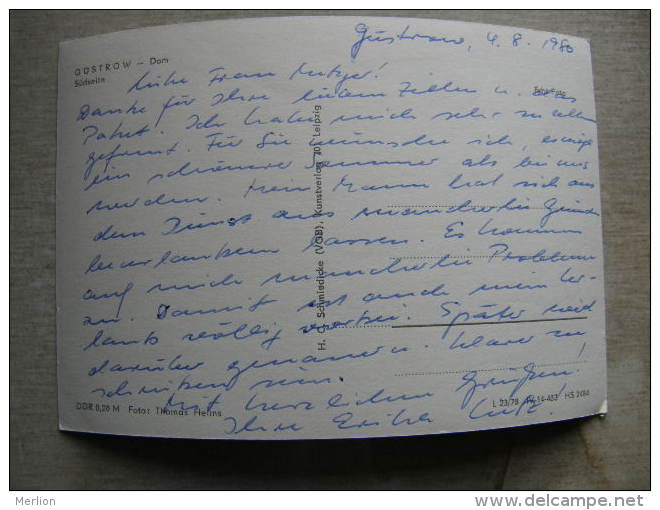 Güstrow, 4. 8. 1980
GÜSTROW – Dom
Südseite
Liebe Frau Metzger!
Danke für Ihre lieben Zeilen u. das
Paket. Ich habe mich sehr zu allem
gefreut. Für Sie wünsche ich, es möge
ein schönerer Sommer als bei uns
werden. Mein Mann hat sich aus
dem Dienst aus mancherlei Gründen
beurlauben lassen. Es kommen
auf mich mancherlei Probleme
zu. Damit ist auch mein Ur-
laub völlig vorbei. Später wird
darüber genauer u. klarer zu
schreiben sein.
Mit herzlichen Grüßen!
Ihre Erika Lutz!
H. C. Schmiedicke (VOB), Kunstverlag, 701 Leipzig
DDR 0,20 M Foto: Thomas Helms
L 23/78 IV-14-483 HS 2486
Merlion
www.delcampe.net